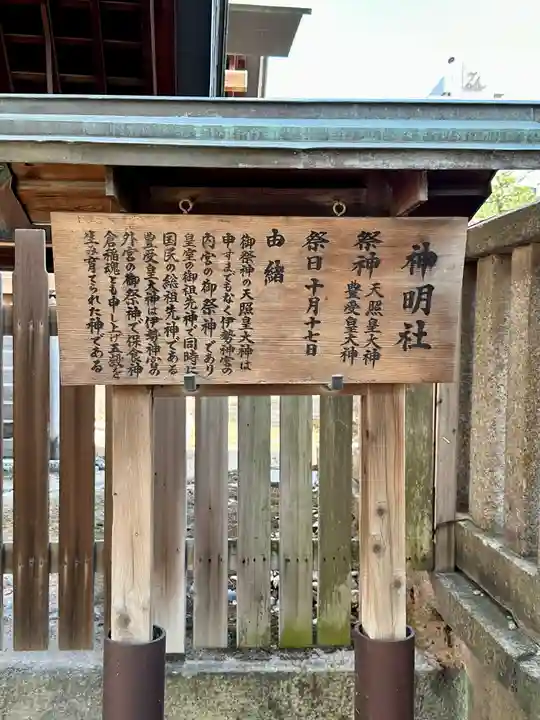 神明社
祭神 天照皇大神
豊受皇大神
祭日 十月十七日
由緒
御祭神の天照皇大神は
申すまでもなく伊勢神宮の
内宮の御祭神であり
皇室の御祖先神で同時に
国民の総祖先神である
豊受皇大神は伊勢神宮の
外宮の御祭神で保食神
倉稲魂とも申し上げ五穀を
生み育てられた神である